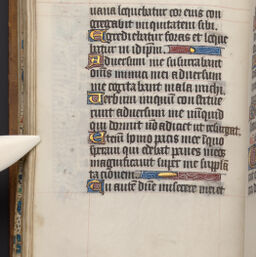 uana loquebatur cor eius con
gregabit iniquitatem sibi.
Egrediebatur foras et loque
batur in idipm.
Aduersum me susurrabant
oms inimici mei aduersum
me cogitabant mala michi.
Uerbum iniquum constitue
runt aduersum me nunquid
qui dormit no adiciet ut resurgat.
Etenim homo pacis mee in quo
speraui qui edebat panes meos
magnificauit super me supplan
tationem.
Tu autem dne miserere mei et